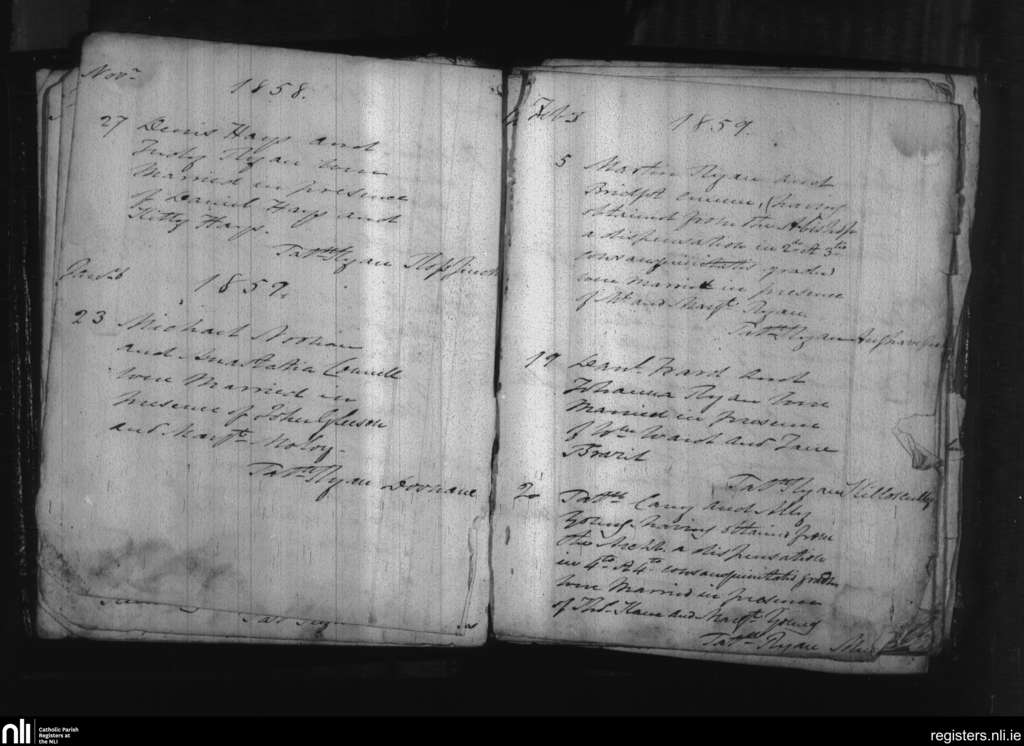 Novr
1858.
27 Denis Hays and
Judy Ryan were
Married in presence
of Daniel Hays and
Kitty Hays.
Patk Ryan
1859.
23 Michael Noonan
and Anastatia Connell
were Married in
presence of John Gleeson
and Margt Moloy.
Patk Ryan Doonane
1859.
5 Martin Ryan and
Bridget (having
obtained from the ABishop
a dispensation in 2do et 3tio
consanguinitatis gradu
were married in presence
of Mt and Margt Ryan
Patk Ryan
19 Danl Ward and
Johanna Ryan were
Married in presence
of Wm Walsh and Jane
Patk Ryan Killoscully
20 Patk Cany and Ally
Young having obtained from
the Archb. a dispensation
in 4to et 4to consanguinitatis gradu
were Married in presence
of Thos Kane and Margt Young
Patk Ryan
nli Catholic Parish
Registers at
the NLI
registers.nli.ie